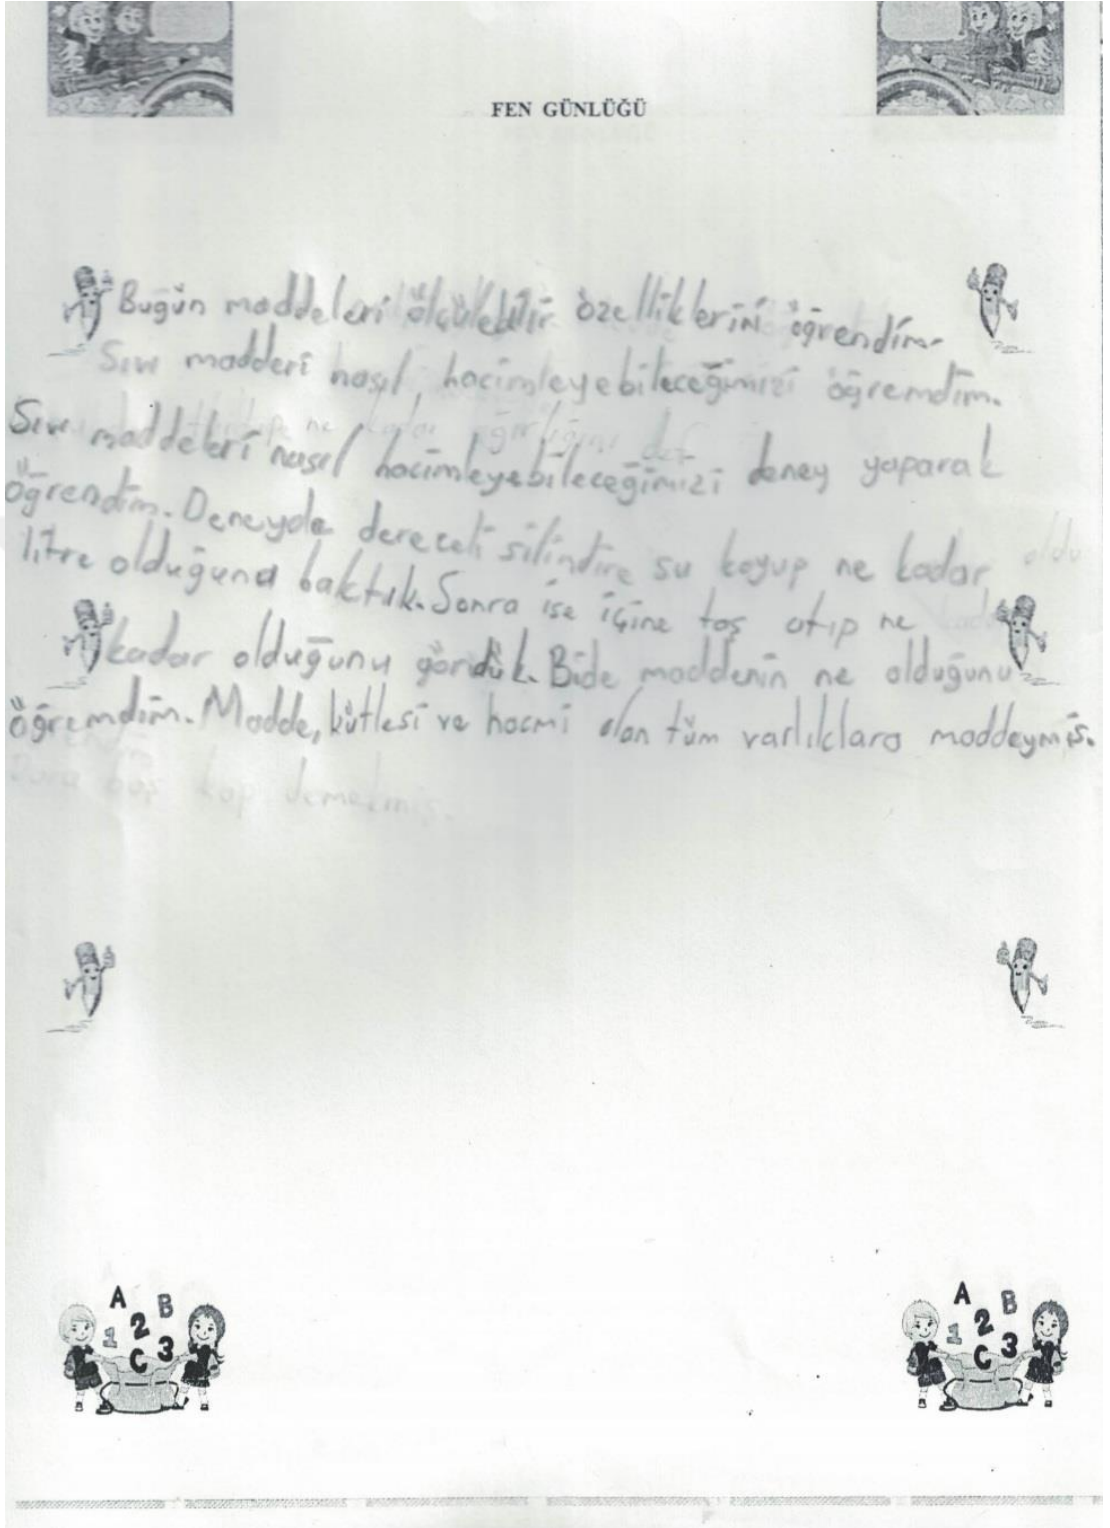 FEN GÜNLÜĞÜ
Bugün maddeleri ölçülebilir özelliklerini öğrendim.
Sıvı madderi nasıl, hacimleyebileceğimizi öğremdim.
Sıvı maddeleri nasıl hacimleyebileceğimizi deney yaparak
öğrendim. Deneyde dereceli silindire su koyup ne kadar
litre olduğuna baktık. Sonra ise içine taş atıp ne
kadar olduğunu gördük. Bide maddenin ne olduğunu
öğremdim. Madde, kütlesi ve hacmi olan tüm varlıklara maddeymiş.
Dara boş kap demekmiş.
A B
1 2
C 3
A B
1 2
C 3